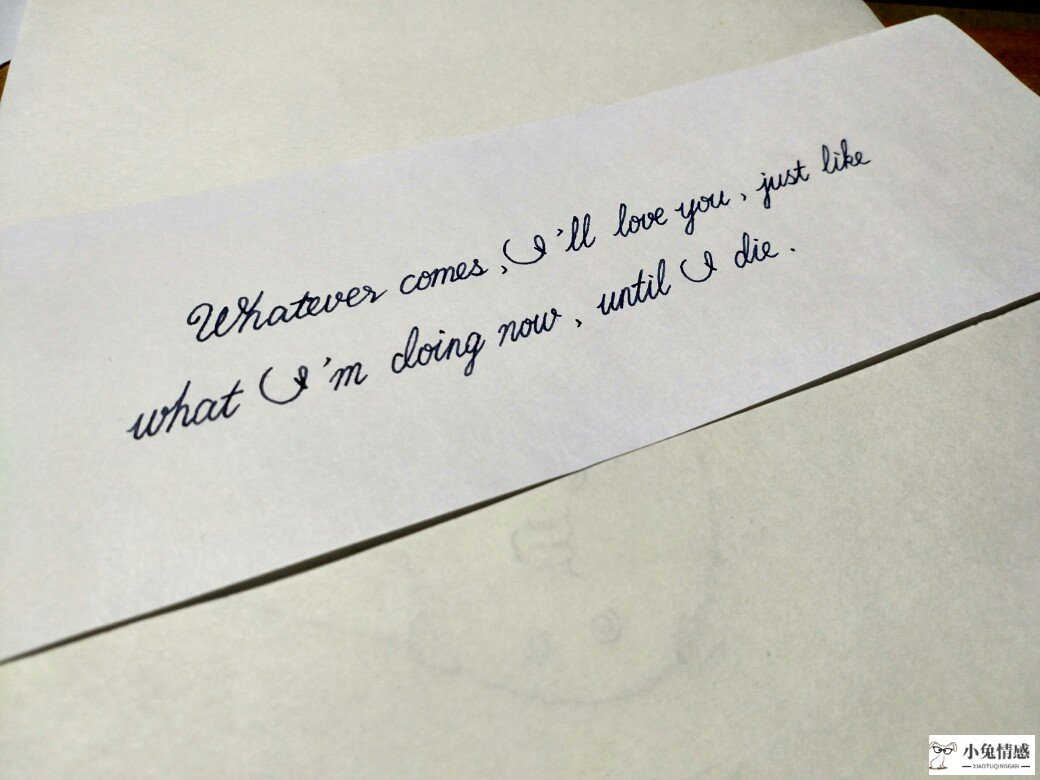 Whatever comes, I'll love you, just like
what I'm doing now, until I die.
小兔情感
XIAOTUQINGGAN